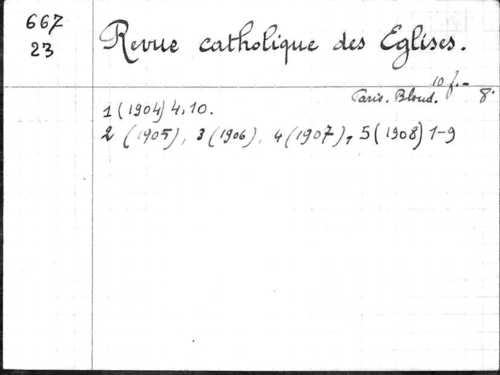 667
23
Revue catholique des Eglises.
10 f. -
Paris. Bloud. 8°
1 (1904) 4, 10.
2 (1905), 3 (1906), 4 (1907), 5 (1908) 1-9